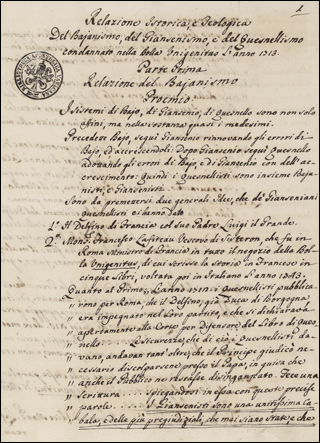 1
Relazione Istorica, e Teologica
Del Bajanismo, del Giansenismo, e del Quesnellismo
condannato nella Bolla Unigenitus l'anno 1713.
Parte Prima
Relazione del Bajanismo
Proemio
I sistemi di Bajo, di Giansenio, di Quesnello sono non solo
affini, ma nella sostanza quasi i medesimi.
Precedere Bajo, seguì Giansenio rinnovando gli errori di
Bajo, ed accrescendoli: Dopo Giansenio seguì Quesnello
adottando gli errori di Bajo, e di Giansenio con dell'ac-
crescimento: Quindi i Quesnellisti sono insieme Baja-
nisti, e Giansenisti.
Sono da premettersi due generali Idee, che de' Gianseniani
Quesnellisti ci hanno dato
1.° Il Delfino di Francia col suo Padre Luigi il Grande.
2.° Mons. Francesco Lafiteau Vescovo di Sisteron che fu in
Roma Ministro di Francia in tutto il negozio della Bol-
la Unigenitus, di cui scrisse la storia in Francese in
cinque libri, voltata poi in Italiano l'anno
Quanto al Primo, L'anno i Quesnellisti pubblica-
rono per Roma, che il Delfino, già Duca di Borgogna,
era impegnato nel loro partito, e che si dichiarava
apertamente alla Corte per Difensore del Libro di Ques-
nello. La sicurezza, che di ciò i Quesnellisti da-
vano, andavan tant'oltre, che il Principe giudicò ne-
cessario discolparsene presso il Papa, in guisa che
anche il Pubblico ne restasse disingannato. Fece una
Scrittura spiegandosi in essa con queste precise
parole. I Giansenisti sono una unitissima Ca-
bala, e delle più pregiudiziali, che mai siano state, e che